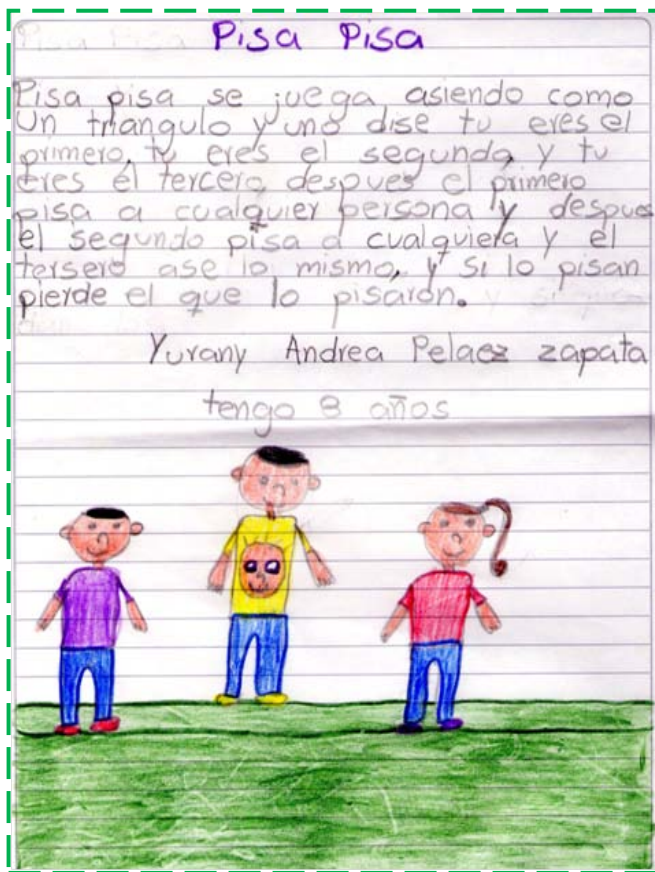 Pisa Pisa
Pisa pisa se juega asiendo como
un triangulo y uno dise tu eres el
primero, tu eres el segundo, y tu
eres el tercero, despues el primero
pisa a cualquier persona y despues
el segundo pisa a cualquiera y el
tersero ase lo mismo, y si lo pisan
pierde el que lo pisaron.
Yurany Andrea Pelaez zapata
tengo 8 años